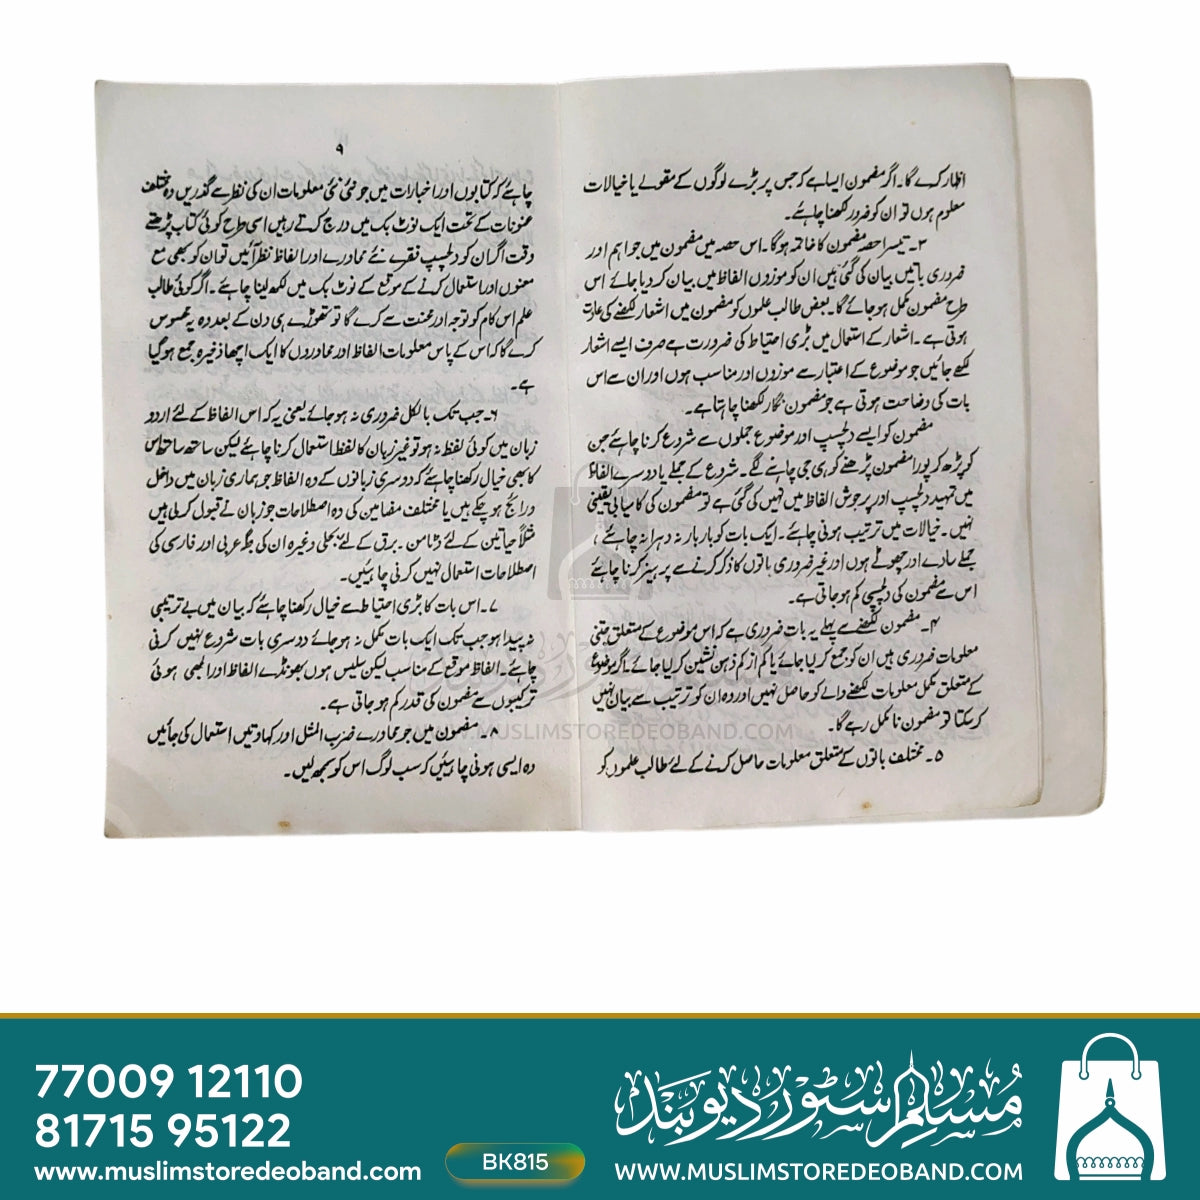 اظہار کرے گا۔ اگر مضمون ایسا ہے کہ جس پر بڑے لوگوں کے مقولے یا خیالات
معلوم ہوں تو ان کو ضرور لکھنا چاہئے۔
۳۔ تیسرا حصہ مضمون کا خاتمہ ہوگا۔ اس حصہ میں مضمون میں جو اہم اور
ضروری باتیں بیان کی گئی ہیں ان کو موزوں الفاظ میں بیان کر دیا جائے اس
طرح مضمون مکمل ہو جائے گا۔ بعض طالب علموں کو مضمون میں اشعار لکھنے کی عادت
ہوتی ہے۔ اشعار کے استعمال میں بڑی احتیاط کی ضرورت ہے صرف ایسے اشعار
لکھے جائیں جو موضوع کے اعتبار سے موزوں اور مناسب ہوں اور ان سے اس
بات کی وضاحت ہوتی ہے جو مضمون نگار لکھنا چاہتا ہے۔
مضمون کو ایسے دلچسپ اور موضوع جملوں سے شروع کرنا چاہئے جن
کو پڑھ کر پورا مضمون پڑھنے کو ہی جی چاہنے لگے۔ شروع کے جملے یا دوسرے الفاظ
میں تمہید دلچسپ اور پرجوش الفاظ میں نہیں کی گئی ہے تو مضمون کی کامیابی یقینی
نہیں۔ خیالات میں ترتیب ہونی چاہئے۔ ایک بات کو بار بار نہ دہرانہ چاہئے،
جملے سادے اور چھوٹے ہوں اور غیر ضروری باتوں کا ذکر کرنے سے پرہیز کرنا چاہئے
اس سے مضمون کی دلچسپی کم ہو جاتی ہے۔
۴۔ مضمون لکھنے سے پہلے یہ بات ضروری ہے کہ اس موضوع کے متعلق جتنی
معلومات ضروری ہیں ان کو جمع کر لیا جائے یا کم از کم ذہن نشین کر لیا جائے۔ اگر موضوع
کے متعلق مکمل معلومات لکھنے والے کو حاصل نہیں اور وہ ان کو ترتیب سے بیان نہیں
کر سکتا تو مضمون نامکمل رہے گا۔
۵۔ مختلف باتوں کے متعلق معلومات حاصل کرنے کے لئے طالب علموں کو
۹
چاہئے کہ کتابوں اور اخبارات میں جو نئی نئی معلومات ان کی نظر سے گذریں وہ مختلف
عنونات کے تحت ایک نوٹ بک میں درج کرتے رہیں اسی طرح کوئی کتاب پڑھتے
وقت اگر ان کو دلچسپ فقرے نئے محاورے اور الفاظ نظر آئیں تو ان کو بھی مع
معنوں اور استعمال کرنے کے موقع کے نوٹ بک میں لکھ لینا چاہئے۔ اگر کوئی طالب
علم اس کام کو توجہ اور محنت سے کرے گا تو تھوڑے ہی دن کے بعد وہ یہ محسوس
کرے گا کہ اس کے پاس معلومات الفاظ اور محاوروں کا ایک اچھا ذخیرہ جمع ہو گیا
ہے۔
۶۔ جب تک بالکل ضروری نہ ہو جائے یعنی یہ کہ اس الفاظ کے لئے اردو
زبان میں کوئی لفظ نہ ہو تو غیر زبان کا لفظ استعمال کرنا چاہئے لیکن ساتھ ساتھ اس
کا بھی خیال رکھنا چاہئے کہ دوسری زبانوں کے وہ الفاظ جو ہماری زبان میں داخل
و رائج ہو چکے ہیں یا مختلف مضامین کی وہ اصطلاحات جو زبان نے قبول کر لی ہیں
مثلاً حیاتین کے لئے وٹامن۔ برق کے لئے بجلی وغیرہ ان کی جگہ عربی اور فارسی کی
اصطلاحات استعمال نہیں کرنی چاہئیں۔
۷۔ اس بات کا بڑی احتیاط سے خیال رکھنا چاہئے کہ بیان میں بے ترتیبی
نہ پیدا ہو جب تک ایک بات مکمل نہ ہو جائے دوسری بات شروع نہیں کرنی
چاہئے۔ الفاظ موقع کے مناسب لیکن سلیس ہوں بھونڈے الفاظ اور الجھی ہوئی
ترکیبوں سے مضمون کی قدر کم ہو جاتی ہے۔
۸۔ مضمون میں جو محاورے ضرب المثل اور کہاوتیں استعمال کی جائیں
وہ ایسی ہونی چاہئیں کہ سب لوگ اس کو سمجھ لیں۔
WWW.MUSLIMSTOREDEOBAND.COM
77009 12110
81715 95122
www.muslimstoredeoband.com
BK815
مسلم سٹور دیوبند
WWW.MUSLIMSTOREDEOBAND.COM